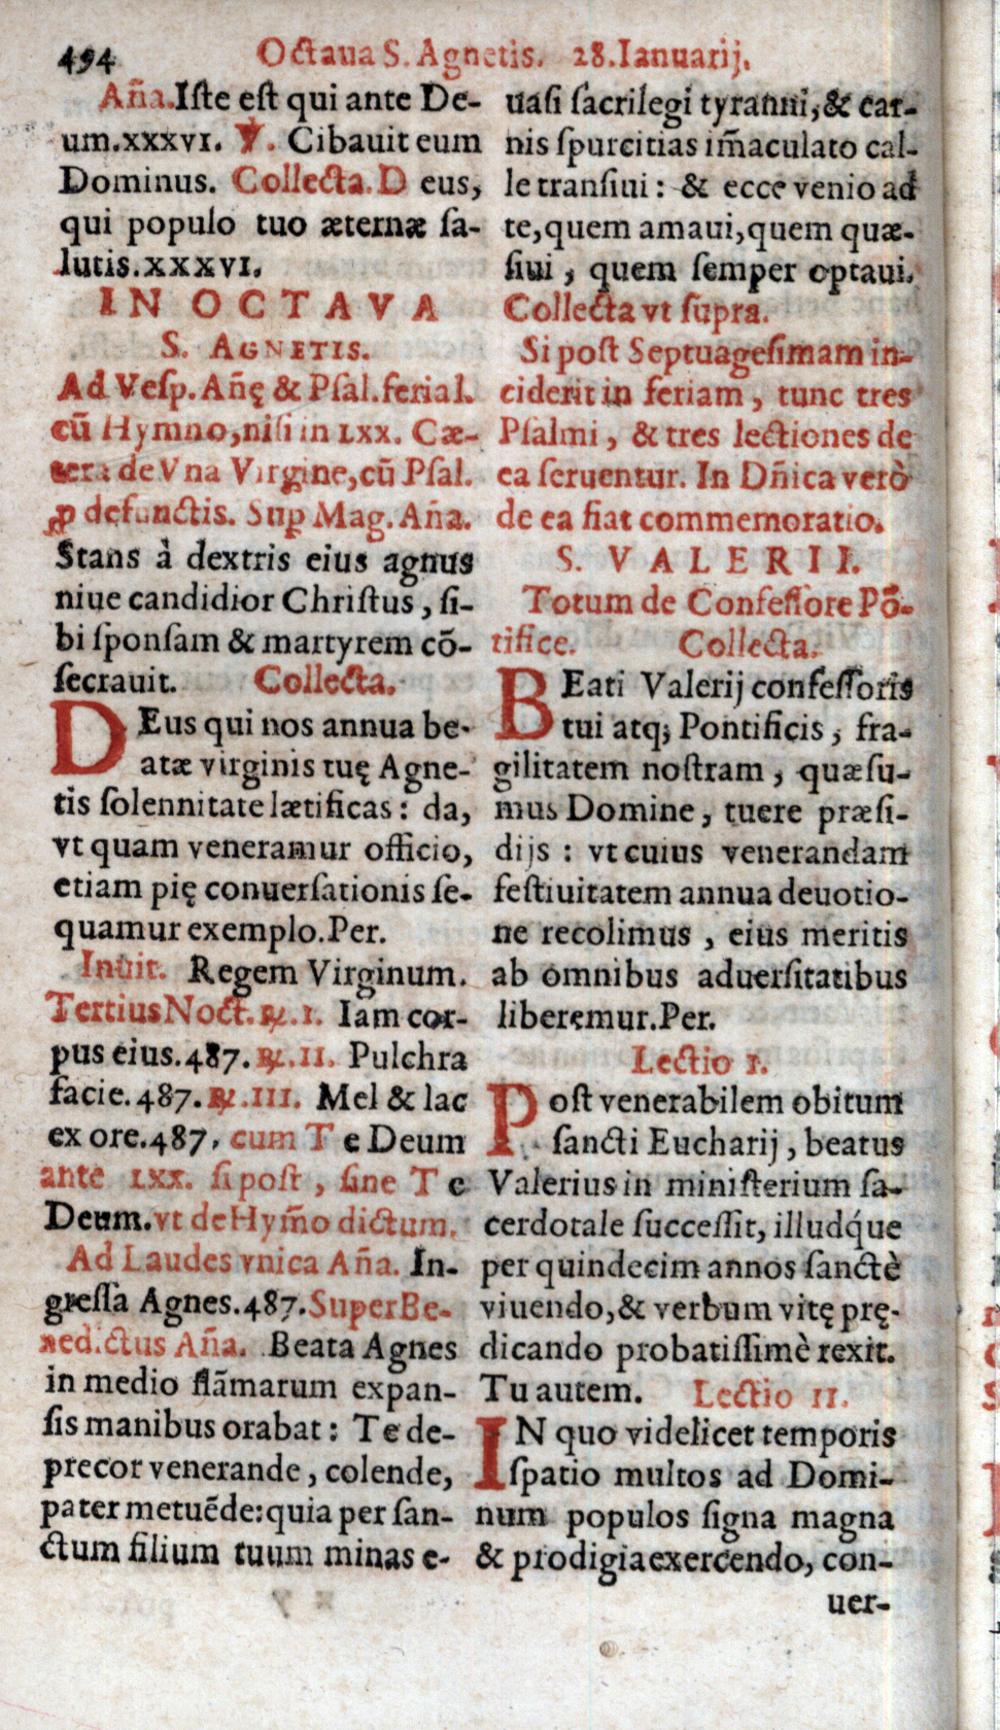 494 Octaua S. Agnetis. 28. Ianuarij.
Aña. Iste est qui ante De-
um. xxxvi. ℣. Cibauit eum
Dominus. Collecta. D eus,
qui populo tuo æternæ sa-
lutis. xxxvi.
IN OCTAVA
S. AGNETIS.
Ad Vesp. Añę & Psal. ferial.
cū Hymno, nisi in LXX. Cæ-
tera de Vna Virgine, cū Psal.
ꝓ defunctis. Sup Mag. Aña.
Stans à dextris eius agnus
niue candidior Christus, si-
bi sponsam & martyrem cō-
secrauit. Collecta.
DEus qui nos annua be-
atæ virginis tuę Agne-
tis solennitate lætificas: da,
vt quam veneramur officio,
etiam pię conuersationis se-
quamur exemplo. Per.
Inuit. Regem Virginum.
Tertius Noct. ℟. I. Iam cor-
pus eius. 487. ℟. II. Pulchra
facie. 487. ℟. III. Mel & lac
ex ore. 487. cum T e Deum
ante LXX. si post, sine T e
Deum. vt de Hym̃o dictum.
Ad Laudes vnica Aña. In-
gressa Agnes. 487. Super Be-
nedictus Aña. Beata Agnes
in medio flāmarum expan-
sis manibus orabat: Te de-
precor venerande, colende,
pater metuēde: quia per san-
ctum filium tuum minas e-
uasi sacrilegi tyranni, & car-
nis spurcitias im̃aculato cal-
le transiui: & ecce venio ad
te, quem amaui, quem quæ-
siui, quem semper optaui.
Collecta vt supra.
Si post Septuagesimam in-
ciderit in feriam, tunc tres
Psalmi, & tres lectiones de
ea seruentur. In Dñica verò
de ea fiat commemoratio.
S. VALERII.
Totum de Confessore Pō-
tifice. Collecta.
BEati Valerij confessoris
tui atq; Pontificis, fra-
gilitatem nostram, quæsu-
mus Domine, tuere præsi-
dijs: vt cuius venerandam
festiuitatem annua deuotio-
ne recolimus, eius meritis
ab omnibus aduersitatibus
liberemur. Per.
Lectio I.
Post venerabilem obitum
sancti Eucharij, beatus
Valerius in ministerium sa-
cerdotale successit, illudq́ue
per quindecim annos sanctè
viuendo, & verbum vitę prę-
dicando probatissimè rexit.
Tu autem. Lectio II.
IN quo videlicet temporis
spatio multos ad Domi-
num populos signa magna
& prodigia exercendo, con-
uer-